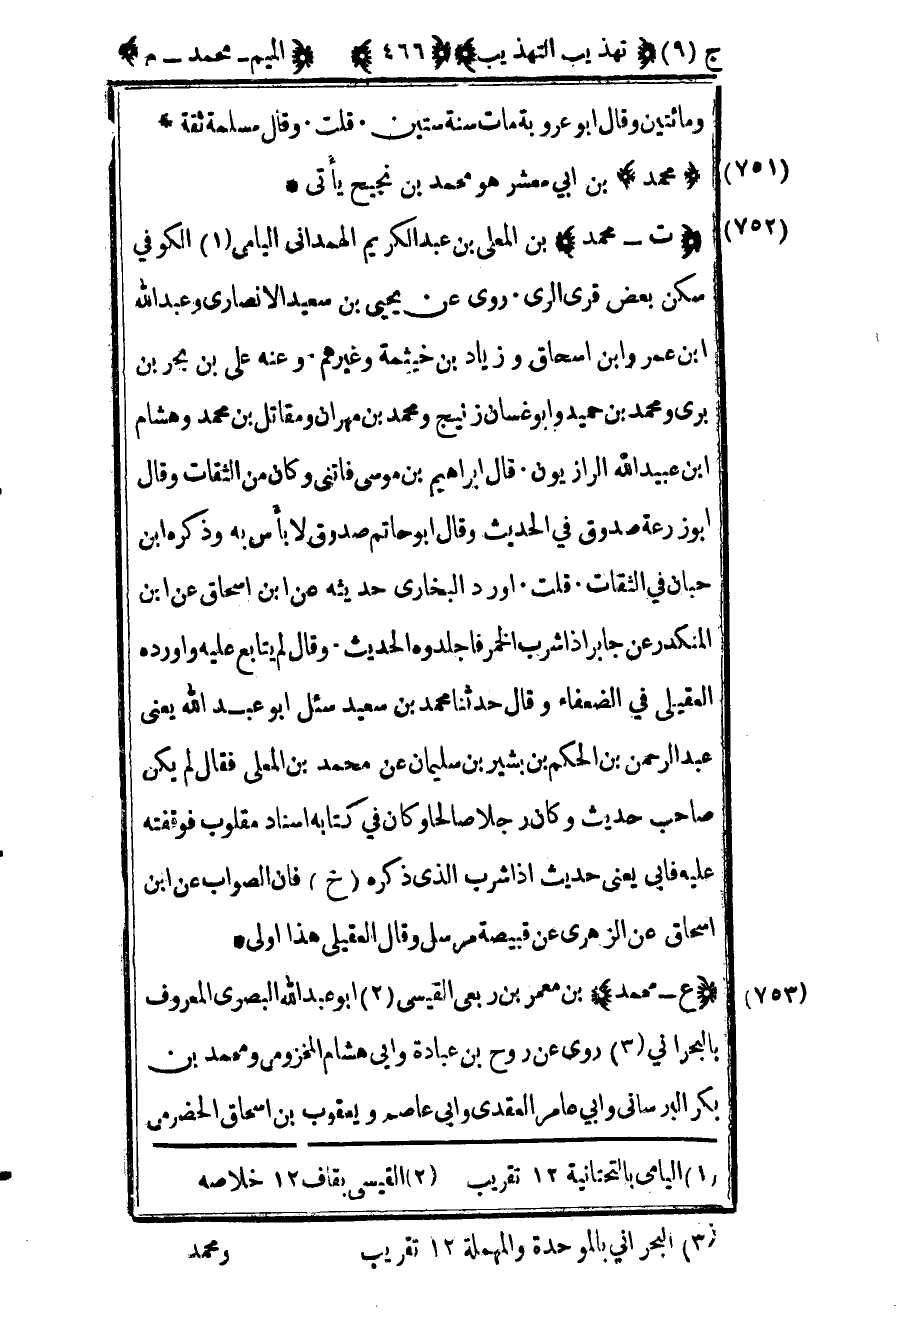 ج (٩) ﴿ تهذيب التهذيب ﴾ ﴿ ٤٦٦ ﴾ ﴿ الميم ـ محمد ـ م ﴾
ومائتين وقال ابو عروبة مات سنة ستين · قلت · وقال مسلمة ثقة *
(٧٥١) ﴿ محمد ﴾ بن ابي معشر هو محمد بن نجيح يأتى *
(٧٥٢) ﴿ ت ـ محمد ﴾ بن المعلى بن عبد الكريم الهمدانى اليامى (١) الكوفي
سكن بعض قرى الرى · روى عن يحيى بن سعيد الانصارى وعبد الله
ابن عمر وابن اسحاق و زياد بن خيثمة وغيرهم · وعنه على بن بحر بن
برى ومحمد بن حميد وابو غسان زنيج ومحمد بن مهران ومقاتل بن محمد وهشام
ابن عبيد الله الرازيون · قال ابراهيم بن موسى فاتنى وكان من الثقات وقال
ابو زرعة صدوق في الحديث وقال ابو حاتم صدوق لا بأس به وذكره ابن
حبان في الثقات · قلت · اورد البخارى حديثه عن ابن اسحاق عن ابن
المنكدر عن جابر اذا شرب الخمر فاجلدوه الحديث · وقال لم يتابع عليه واورده
العقيلى في الضعفاء و قال حدثنا محمد بن سعيد سئل ابو عبد الله يعنى
عبد الرحمن بن الحكم بن بشير بن سليمان عن محمد بن المعلى فقال لم يكن
صاحب حديث وكان رجلا صالحا وكان في كتابه اسناد مقلوب فوقفته
عليه فابى يعنى حديث اذا شرب الذى ذكره (خ) فان الصواب عن ابن
اسحاق عن الزهرى عن قبيصة مرسل وقال العقيلى هذا اولى *
(٧٥٣) ﴿ ع ـ محمد ﴾ بن معمر بن ربعى القيسى (٢) ابو عبد الله البصرى المعروف
بالبحراني (٣) روى عن روح بن عبادة وابى هشام المخزومى ومحمد بن
بكر البرسانى وابي عامر العقدى وابى عاصم و يعقوب بن اسحاق الحضرمى
(١) اليامى بالتحتانية ١٢ تقريب (٢) القيسى بقاف ١٢ خلاصه
(٣) البحراني بالموحدة والمهملة ١٢ تقريب ومحمد